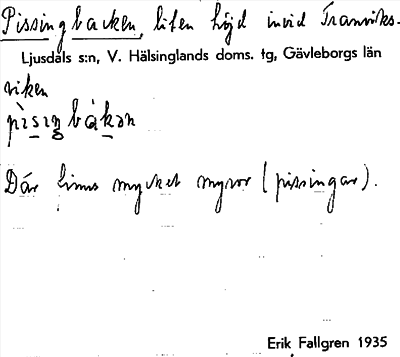 Pissingbacken, liten höjd invid Tranviks-
Ljusdals s:n, V. Hälsinglands doms. tg, Gävleborgs län
viken
pìsiŋbákən
Där finns mycket myror (pissingar).
Erik Fallgren 1935